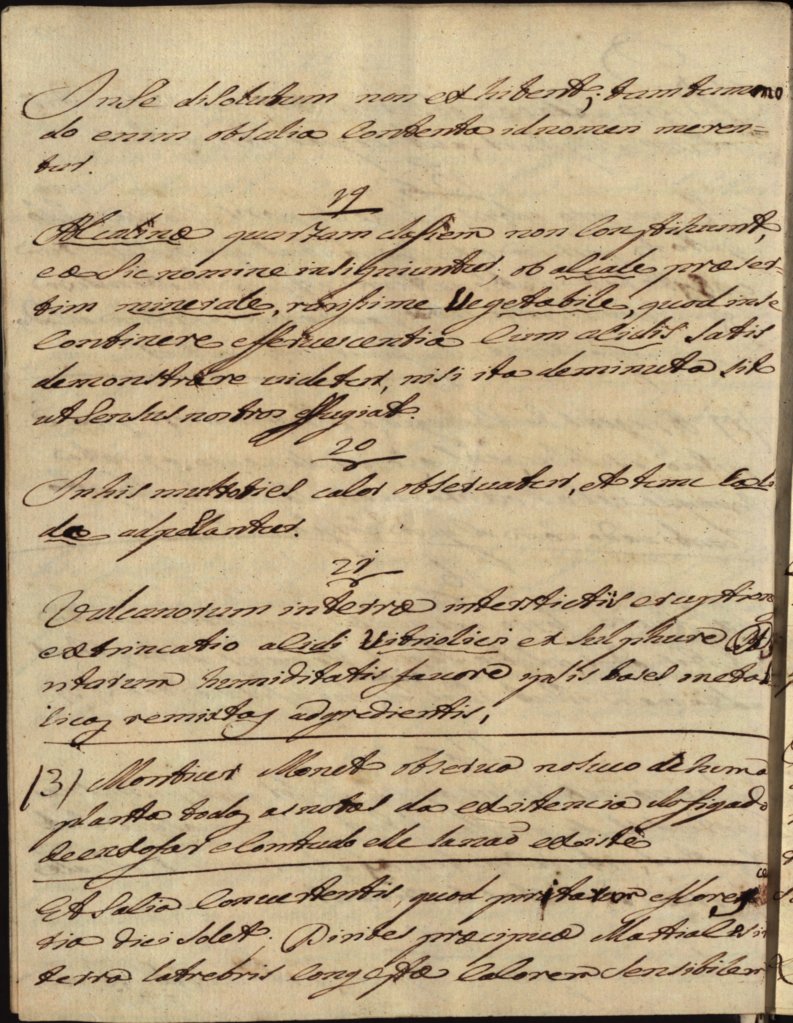 In se disolutum non exhibent, tamtummo
do enim ob salia Contenta id nomen meren=
tur.
19
Alcalinæ quartam classem non Constituunt,
eæ sic nomine insigniuntur, ob alcale præser-
tim minerale, rarissime Vegetabile, quod in se
Continere effervescentia Cum acidis satis
demonstrare videtur, nisi ita deminuta sit
ut sensus nostros effugiat.
20
In his multoties calor observatur, et tunc Cali
dæ adpellantur.
21
Vulcanorum in terræ interstictiis eruptiones
extrincatio acidi Vitriolici ex sulphure
ntarum humiditatis favore ipsis bases meta
licas remistas adgredientis,
(3) Monsieur Monet observa no suco de huma
planta todas as notas da existencia do figado
de enxofar e Contudo elle la não existe
Et salia Convertentis, quod piritarum efloren
tia dici solet; Pirites præcipuæ Martiales in
terræ latebris Congestæ Calorem sensibilem